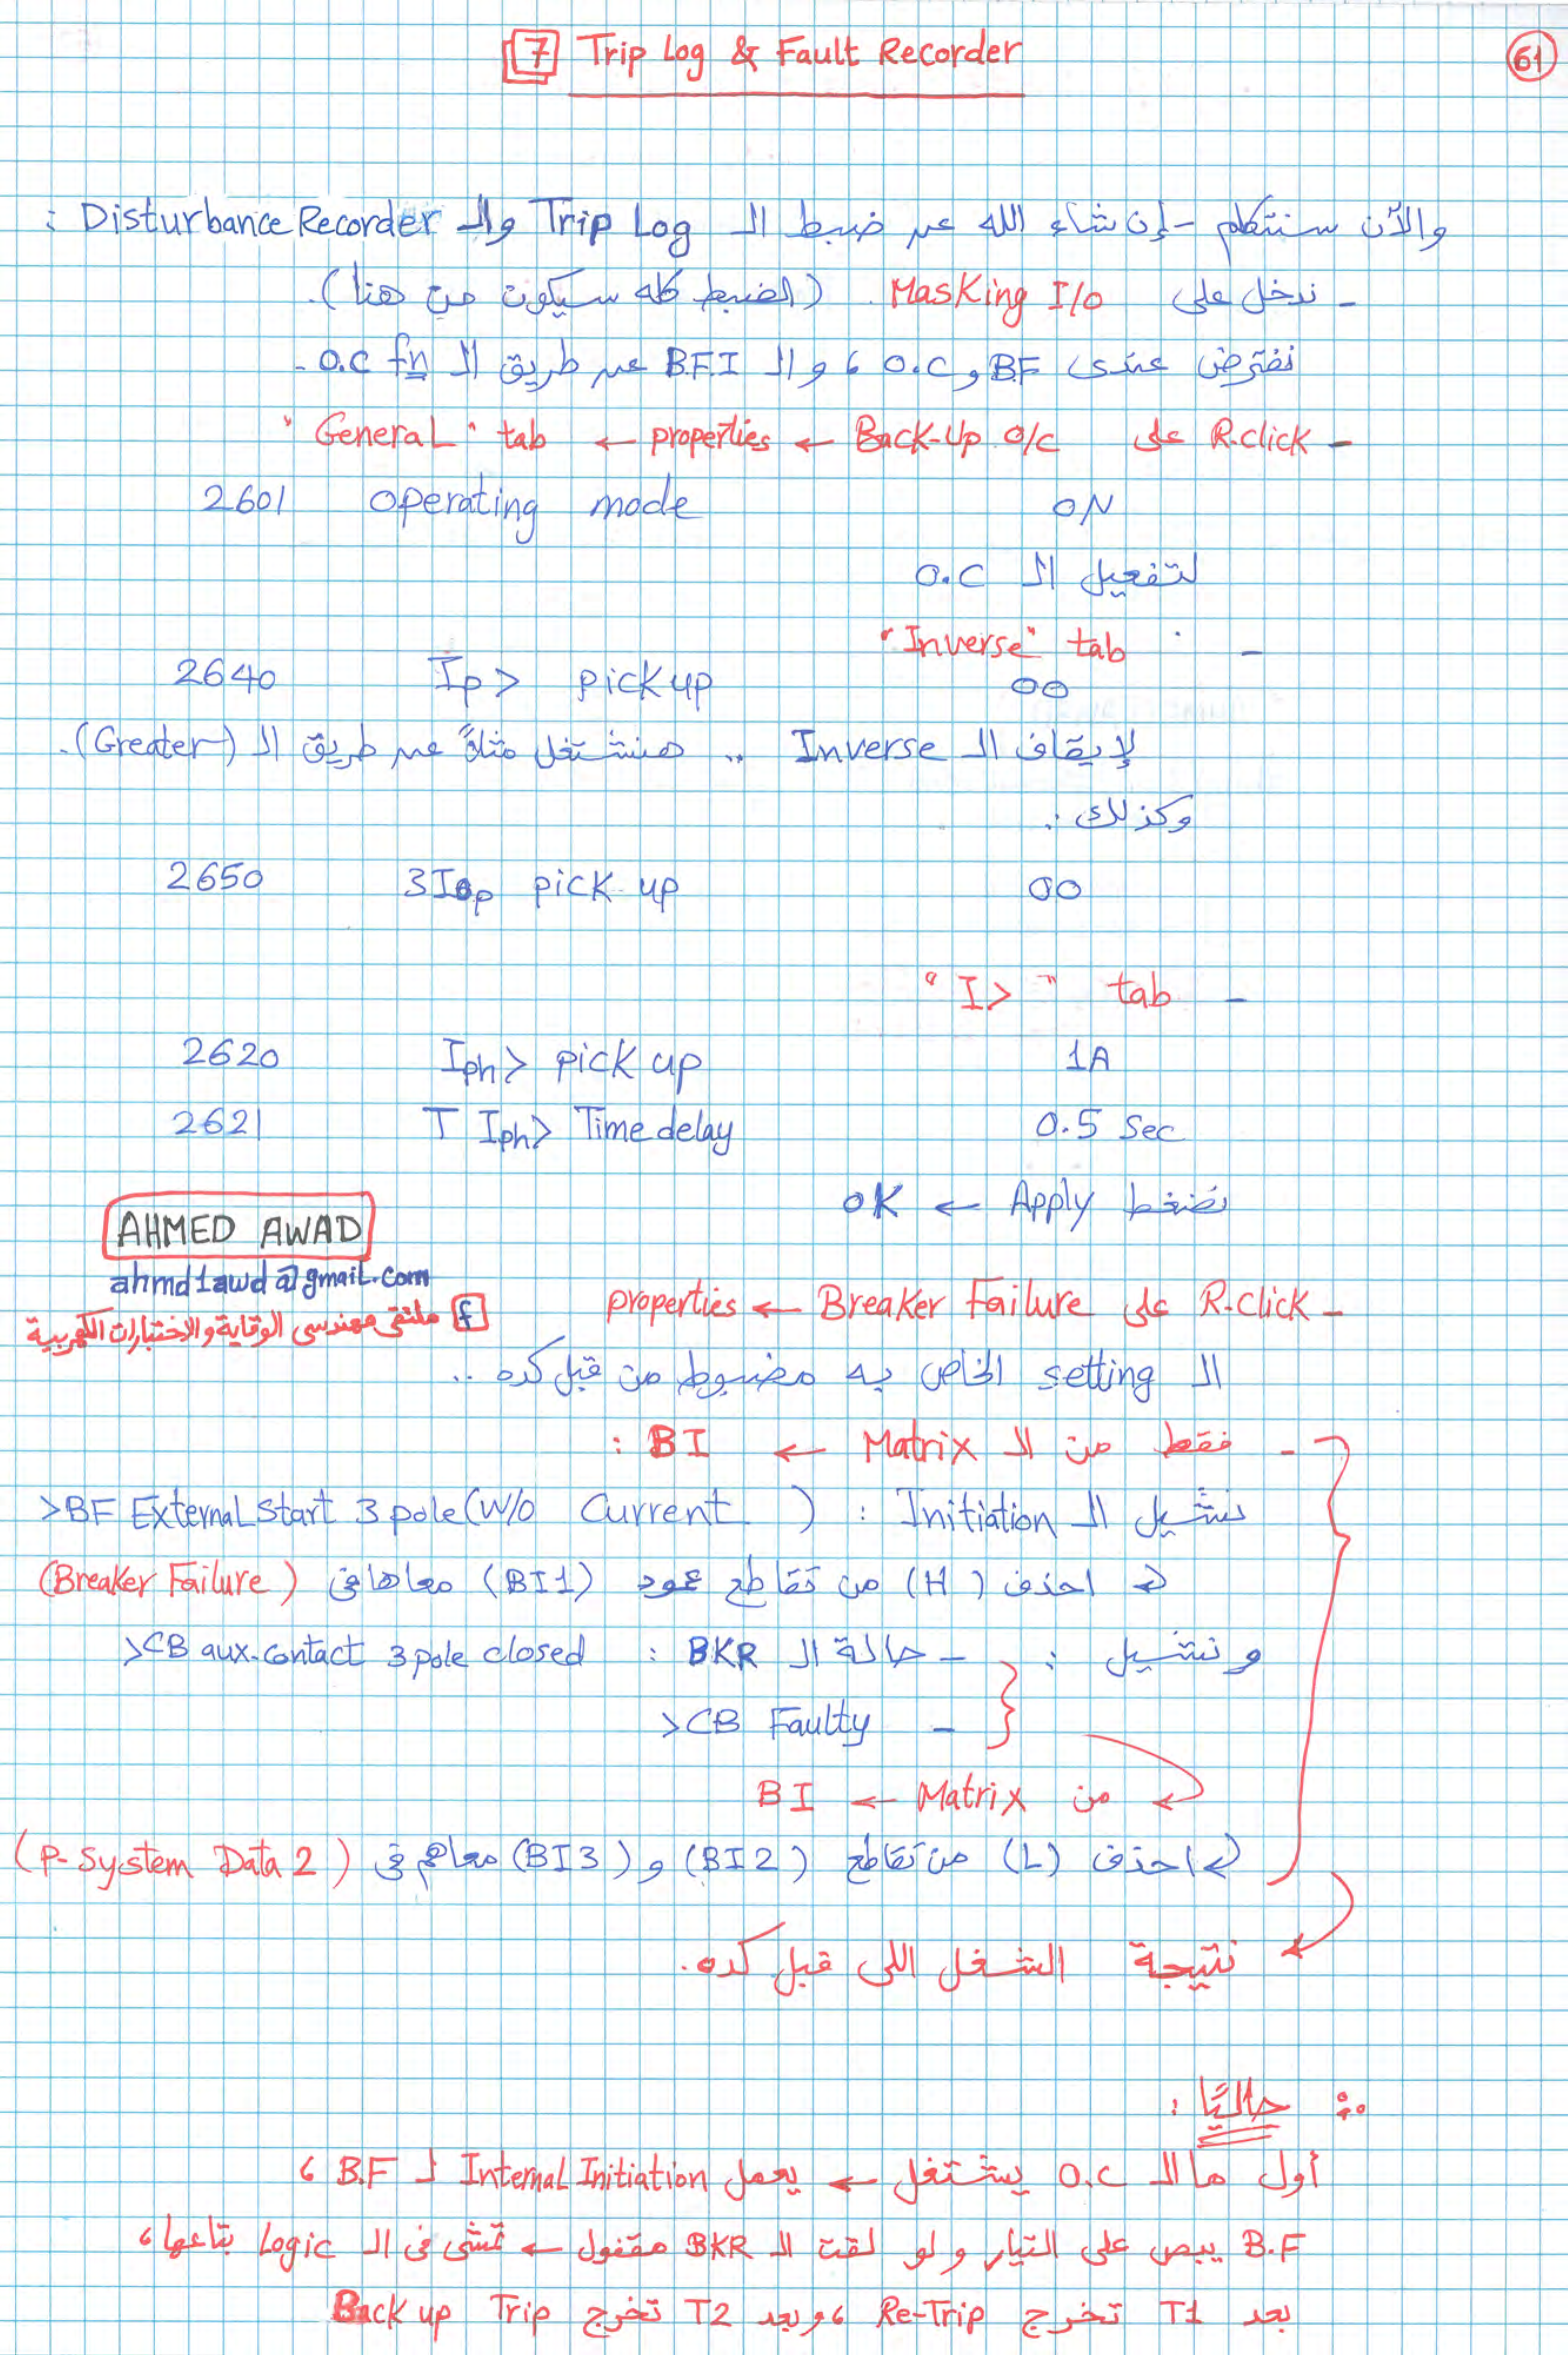 7 Trip Log & Fault Recorder
61
والآن سنتكلم - إن شاء الله عن ضبط الـ Trip Log والـ Disturbance Recorder :
- ندخل على Masking I/O . (الضبط كله سيكون من هنا).
نفترض عندى BF و O.C ، و الـ B.F.I عن طريق الـ O.C fn .
- R.click على Back-Up O/C ← properties ← "General" tab
2601 operating mode ON
لتفعيل الـ O.C
- "Inverse" tab
2640 Ip> pickup ∞
لإيقاف الـ Inverse .. هنشتغل مثلاً عن طريق الـ (Greater).
وكذلك :
2650 3I0p pick up ∞
- "I>" tab
2620 Iph> pick up 1A
2621 T Iph> Time delay 0.5 Sec
نضغط Apply ← OK
AHMED AWAD
ahmd1awd@gmail.com
f ملتقى مهندسى الوقاية والاختبارات الكهربية
- R.click على Breaker Failure ← properties
الـ setting الخاص به مضبوط من قبل كده ..
- فقط من الـ Matrix ← BI :
نشيل الـ Initiation : >BF External Start 3 pole (W/O Current )
احذف (H) من تقاطع عمود (BI1) معاها فى (Breaker Failure)
و نشيل : - حالة الـ BKR : >CB aux.contact 3pole closed
- >CB Faulty
من Matrix ← BI
احذف (L) من تقاطع (BI2) و (BI3) معاهم فى (P-System Data 2)
نتيجة الشغل اللى قبل كده.
∴ حاليًا :
أول ما الـ O.C يشتغل ← يعمل Internal Initiation لـ B.F ،
B.F يبص على التيار و لو لقت الـ BKR مقفول ← تمشى فى الـ Logic بتاعها ،
بعد T1 تخرج Re-Trip ، وبعد T2 تخرج Back up Trip